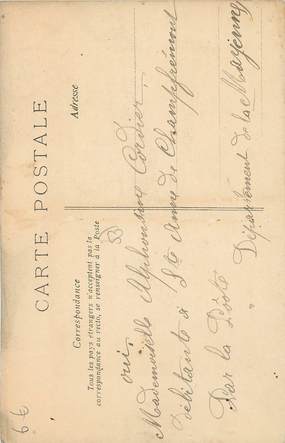 CARTE POSTALE
Correspondance
Tous les pays étrangers n'acceptent pas la
correspondance au recto, se renseigner à la Poste
Adresse
oui.
Mademoiselle Alphonsine Cordier
Débitante à Ste Anne de Champfrémont
Par la Poôté
Département de la Mayenne
6€